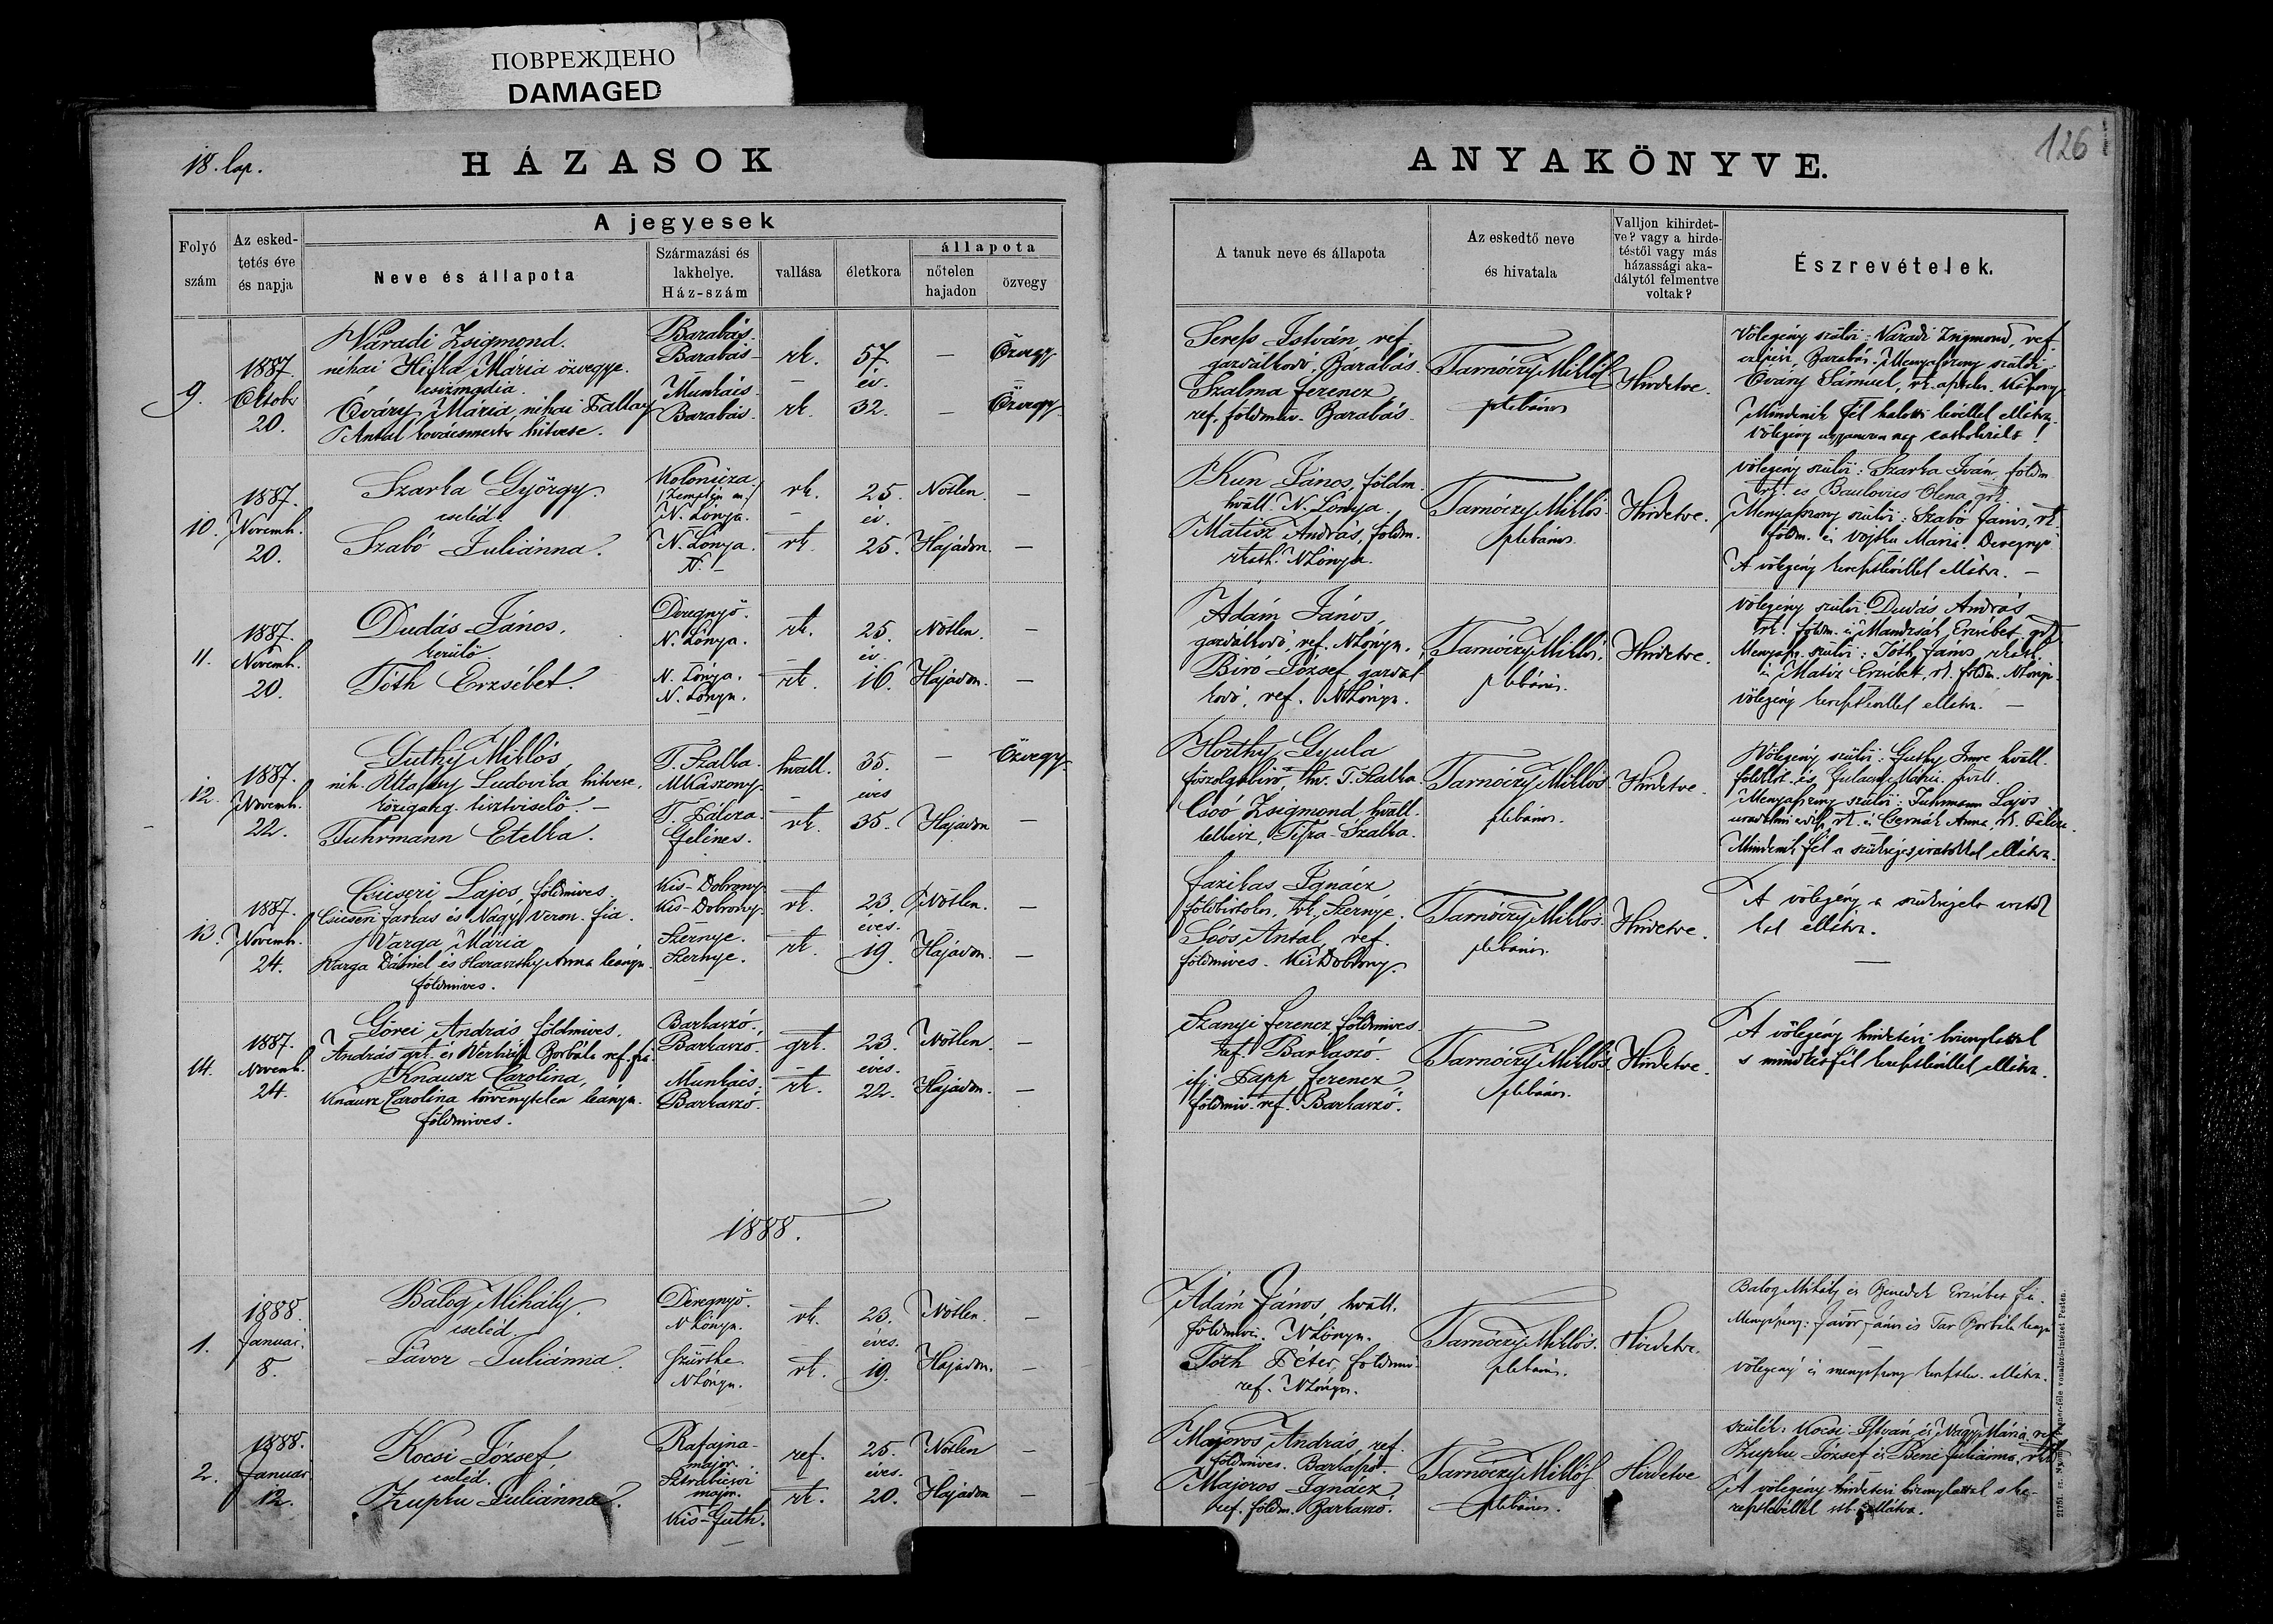 ПОВРЕЖДЕНО
DAMAGED
18. lap.
HÁZASOK
ANYAKÖNYVE.
126
Folyó szám
Az esked-
tetés éve
és napja
A jegyesek
Neve és állapota
Származási és
lakhelye.
Ház-szám
vallása
életkora
állapota
nőtelen
hajadon
özvegy
A tanuk neve és állapota
Az eskedtő neve
és hivatala
Valljon kihirdet-
ve? vagy a hirde-
téstől vagy más
házassági aka-
dálytól felmentve
voltak?
Észrevételek.
9.
1887
Oktobr
20.
Váradi Zsigmond.
néhai Mária özvegye.
csizmadia.
Óváry Mária, néhai Pallay
Antal kovácsmester hitvese.
Barabás.
Barabás
Munkács
Barabás.
rk.
57
év.
rk.
32.
—
Özvegy
—
Özvegy
István, ref.
gazdálkodó, Barabás.
Szalma Ferencz
ref. földműv. Barabás
Tarnóczy Miklós
plébános
Hirdetve.
Vőlegény szülői: Váradi Zsigmond, ref.
Barabás. Menyasszony szülői
Óváry Sámuel, rk.
Mindenik fél halotti levéllel ellátva.
Vőlegény ugyanezen nap
10.
1887.
Novemb.
20.
Szarka György.
cseléd.
Szabó Juliánna.
Kolonicza
(Zemplén m.)
N. Lónya.
N. Lónya.
N. —
rk.
25.
év.
rk.
25.
Nőtlen.
—
Hajadon.
—
Kun János, földm.
hvall. N. Lónya.
Matisz András, földm.
rkath. NLónya.
Tarnóczy Miklós.
plébános.
Hirdetve.
vőlegény szülői: Szarka Iván, földm
rk. és Olena grt.
Menyasszony szülői: Szabó János, rk.
földm. és Mari. Deregnyő
A vőlegény keresztlevéllel ellátva. —
11.
1887.
Novemb.
20.
Dudás János,
kerülő
Tóth Erzsébet.
Deregnyő.
N. Lónya.
N. Lónya.
N. Lónya.
rk.
25.
év
rk.
16.
Nőtlen.
—
Hajadon.
—
Ádám János,
gazdálkodó, ref. NLónya.
Biró József gazdál
kodó, ref. NLónya.
Tarnóczy Miklós.
plébános.
Hirdetve.
vőlegény szülői: Dudás András
rk. földm. és Erzsébet grt
Menyassz. szülői: Tóth János rkath
és Matiz Erzsébet, rk. földm. NLónya.
vőlegény keresztlevéllel ellátva. —
12.
1887.
Novemb.
22.
Guthy Miklós,
néh. Ludovika hitvese,
közigazg. tisztviselő. —
Fuhrmann Etelka.
T. Szalka.
MKászony.
T. Pálcza.
Gelénes.
hvall.
35.
éves
rk.
35.
—
Özvegy.
Hajadon
—
Horthy Gyula
főszolgabiró, hv. T. Szalka
Csoó Zsigmond, hvall.
lelkész, Tisza-Szalka.
Tarnóczy Miklós
plébános.
Hirdetve.
Vőlegény szülői: Guthy Imre hvall.
földbir. és Gulacsy Mária hvall.
Menyasszony szülői: Fuhrmann Lajos
uradalmi rk. és Csernák Anna, rk.
Mindenik fél a szükséges iratokkal ellátva.
13.
1887.
Novemb.
24.
Csicseri Lajos, földmives.
Csicseri Farkas és Nagy Veron. fia.
Varga Mária
Varga Dániel és Haraszthy Anna leánya.
földmives.
Kis-Dobrony.
Kis-Dobrony.
Szernye.
Szernye.
rk.
23.
éves.
rk
19.
Nőtlen.
—
Hajadon.
—
Fazikas Ignácz
földbirtokos, rk, Szernye.
Soós Antal, ref.
földmives. KisDobrony.
Tarnóczy Miklós.
plébános.
Hirdetve.
A vőlegény a szükséges iratok
kal ellátva.
—
14.
1887.
Novemb.
24.
Görei András, földmives.
András grt. és Borbála ref. fia.
Knausz Carolina,
Knausz Carolina törvénytelen leánya.
földmives.
Barkaszó.
Barkaszó.
Munkács.
Barkaszó.
grt.
23.
éves.
rk.
22.
Nőtlen.
—
Hajadon.
—
Szanyi Ferencz földmives
ref. Barkaszó.
ifj. Papp Ferencz
földmiv. ref. Barkaszó.
Tarnóczy Miklós
plébános.
Hirdetve.
A vőlegény hirdetési bizonylattal
s mindkét fél keresztlevéllel ellátva.
1888.
1.
1888.
Januar.
8.
Balog Mihály.
cseléd.
Jávor Juliánna.
Deregnyő.
NLónya.
Szürthe.
NLónya.
rk.
23.
éves.
rk.
19.
Nőtlen.
—
Hajadon.
—
Ádám János, hvall.
földmives. NLónya.
Tóth Péter, földmiv.
ref. NLónya.
Tarnóczy Miklós.
plébános.
Hirdetve.
Balog Mihály és Benedek Erzsébet fia.
Menyasszony: Jávor János és Tar Borbála leánya
vőlegény és menyasszony keresztlev. ellátva.
2.
1888.
Januar
12.
Kocsi József
cseléd.
Zupku Juliánna.
Rafajna-
major.
major.
Kis-Guth.
ref.
25.
éves.
rk.
20.
Nőtlen
—
Hajadon
—
Majoros András, ref.
földmives. Barkaszó.
Majoros Ignácz,
ref. földm. Barkaszó.
Tarnóczy Miklós
plébános.
Hirdetve
szülék: Kocsi István és Nagy Mária, ref.
Zupku József és Bene Juliánna, rk
A vőlegény hirdetési bizonylattal s ke-
resztlevéllel stb. ellátva.